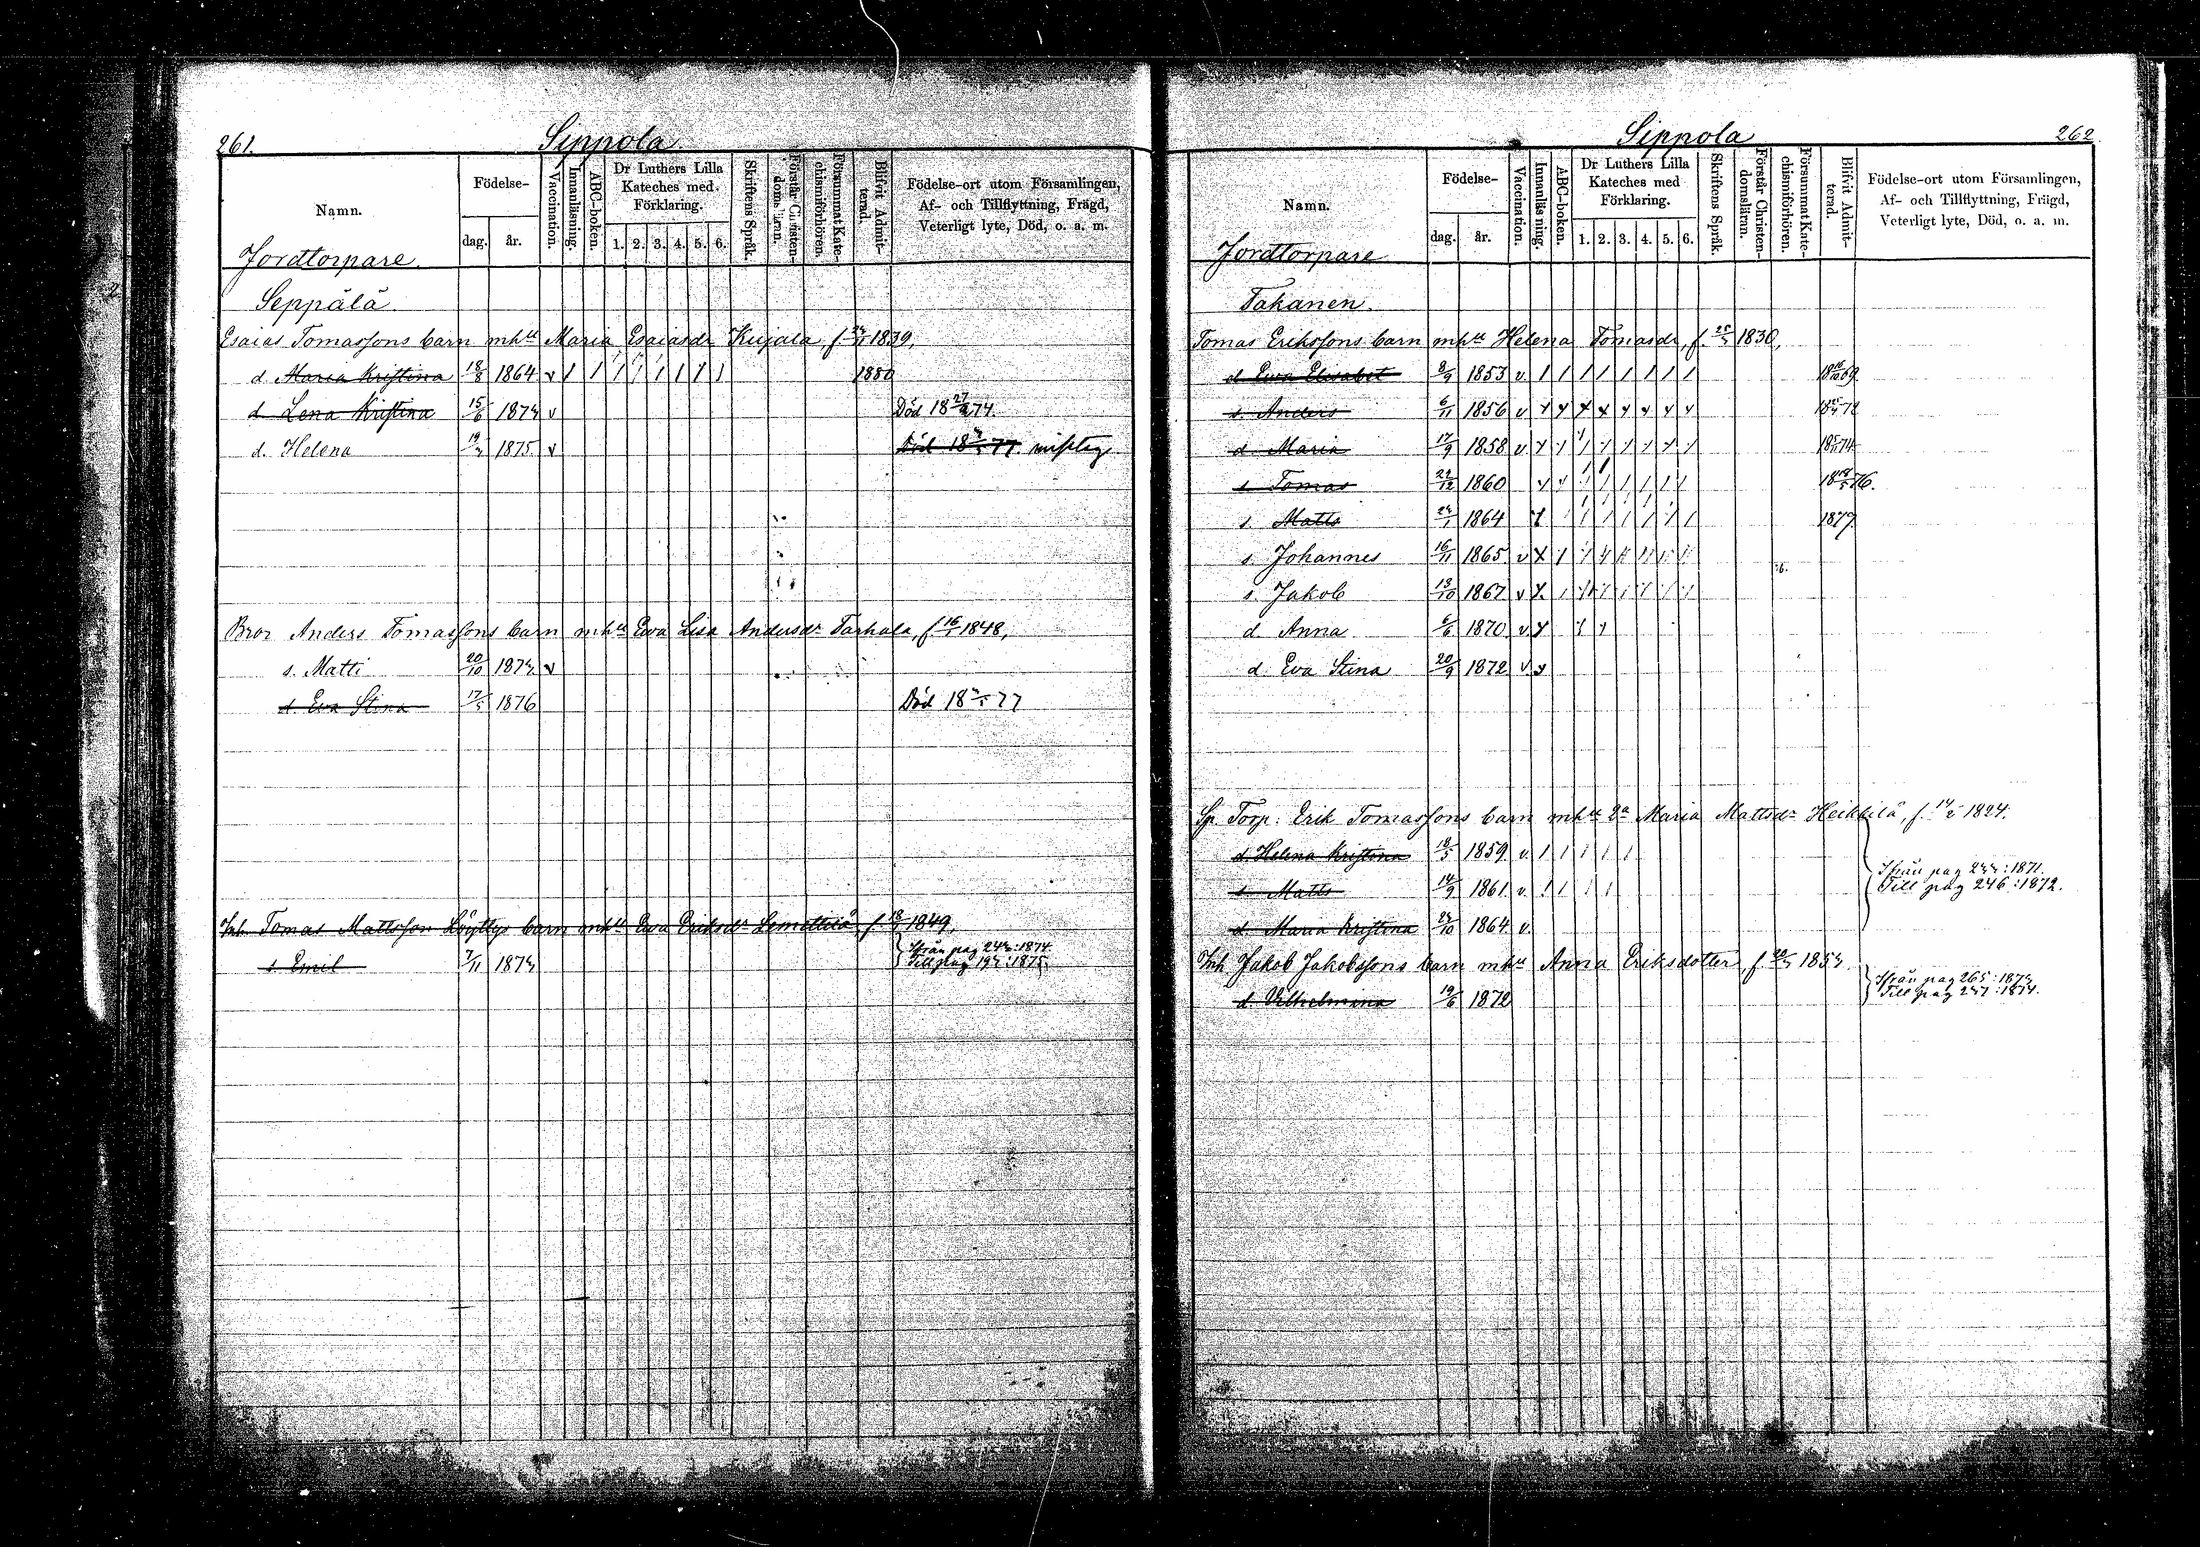 261.
Sippola
Namn.
Födelse-
dag.
år.
Vaccination.
Innanläsning.
ABC-boken.
Dr Luthers Lilla
Kateches med.
Förklaring.
1. 2. 3. 4. 5. 6.
Skriftens Språk.
Förstår Christen-
domsläran.
Försummat Kate-
chismiförhören.
Blifvit Admit-
terad.
Födelse-ort utom Församlingen,
Af- och Tillflyttning, Frägd,
Veterligt lyte, Död, o. a. m.
Jordtorpare.
Seppälä
Esaias Tomassons barn mhu Maria Esaiasdr Kujala, f. 1839,
d. Maria Kristina 18/8 1864 v 1880
d. Lena Kristina 15/6 1873 v Död 1874.
d. Helena 1875. v Död 1877. misstag
Bror Anders Tomassons barn mhu Ewa Lisa Andersdr Tarhala, f. 1848,
s. Matti 20/10 1873 v
d. Eva Stina 17/5 1876 Död 1877
Inh. Tomas Mattsson Löyttys barn mhu Ewa Eriksdr f. 1849,
s. Emil 7/11 1873
Ifrån pag 243:1874.
Till pag 193:1875.
Sippola
262
Namn.
Födelse-
dag.
år.
Vaccination.
Innanläsning.
ABC-boken.
Dr Luthers Lilla
Kateches med
Förklaring.
1. 2. 3. 4. 5. 6.
Skriftens Språk.
Förstår Christen-
domsläran.
Försummat Kate-
chismiförhören.
Blifvit Admit-
terad.
Födelse-ort utom Församlingen,
Af- och Tillflyttning, Frägd,
Veterligt lyte, Död, o. a. m.
Jordtorpare
Takanen.
Tomas Erikssons barn mhu Helena Tomasdr, f. 1830,
d. Ewa Elisabet 8/9 1853 v. 1869
s. Anders 6/11 1856 v 1872
d. Maria 17/9 1858 v. 1874
s. Tomas 22/12 1860 1876.
s. Matts 24/1 1864 1879
s. Johannes 16/11 1865. v
s. Jakob 13/10 1867 v
d. Anna 6/6 1870 v.
d. Eva Stina 20/9 1872 v.
Sp. Torp. Erik Tomassons barn mhu 2a Maria Mattsdr Heikkilä, f. 14/2 1824.
d. Helena Kristina 18/5 1859 v.
s. Matts 14/9 1861 v.
Ifrån pag 233:1871.
Till pag 246:1872.
d. Maria Kristina 24/10 1864 v.
Inh Jakob Jakobssons barn mhu Anna Eriksdotter, f. 1853.
d. Vilhelmina 19/6 1872
Ifrån pag 265:1873
Till pag 237:1874.